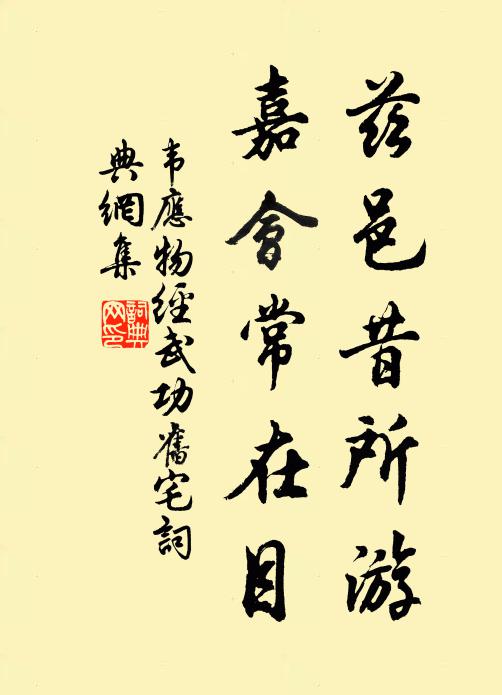 茲邑昔所游
嘉會常在目
韦應物經武功舊宅詞
典網集
詞典网印